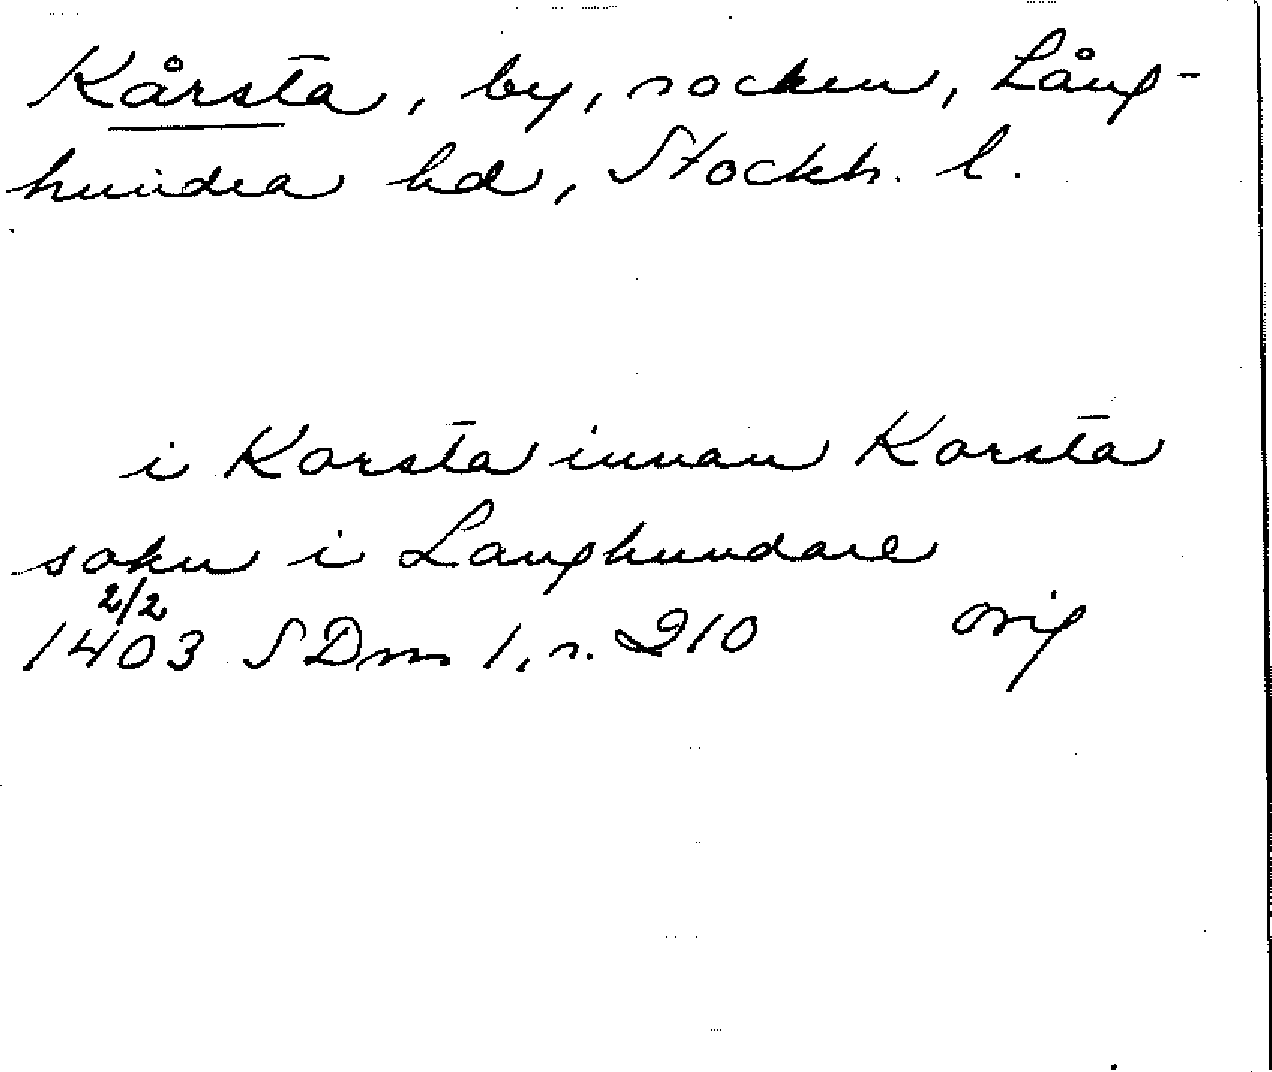 Kårsta, by, socken, Lång-
hundra hd, Stockh. l.
i Karsta innan Karsta
sokn i Langhundare
2/2
1403 SDm 1, s. 210 orig